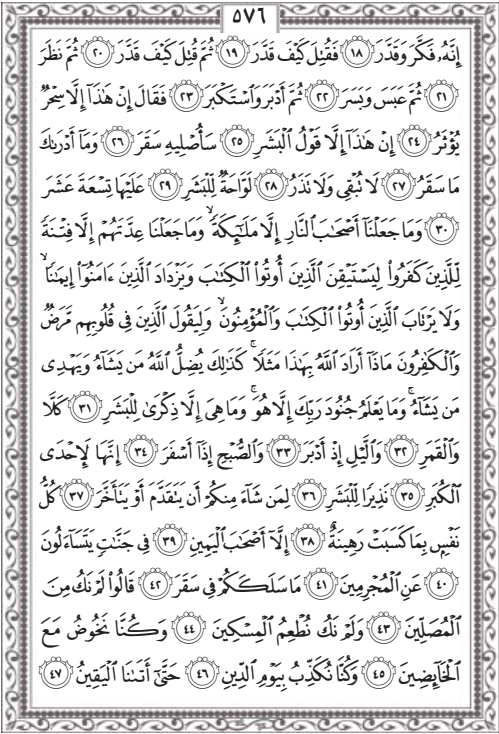 ٥٧٦
إِنَّهُۥ فَكَّرَ وَقَدَّرَ ١٨ فَقُتِلَ كَيْفَ قَدَّرَ ١٩ ثُمَّ قُتِلَ كَيْفَ قَدَّرَ ٢٠ ثُمَّ نَظَرَ
٢١ ثُمَّ عَبَسَ وَبَسَرَ ٢٢ ثُمَّ أَدْبَرَ وَٱسْتَكْبَرَ ٢٣ فَقَالَ إِنْ هَٰذَآ إِلَّا سِحْرٌ
يُؤْثَرُ ٢٤ إِنْ هَٰذَآ إِلَّا قَوْلُ ٱلْبَشَرِ ٢٥ سَأُصْلِيهِ سَقَرَ ٢٦ وَمَآ أَدْرَىٰكَ
مَا سَقَرُ ٢٧ لَا تُبْقِى وَلَا تَذَرُ ٢٨ لَوَّاحَةٌ لِّلْبَشَرِ ٢٩ عَلَيْهَا تِسْعَةَ عَشَرَ
٣٠ وَمَا جَعَلْنَآ أَصْحَٰبَ ٱلنَّارِ إِلَّا مَلَٰٓئِكَةً ۙ وَمَا جَعَلْنَا عِدَّتَهُمْ إِلَّا فِتْنَةً
لِّلَّذِينَ كَفَرُوا۟ لِيَسْتَيْقِنَ ٱلَّذِينَ أُوتُوا۟ ٱلْكِتَٰبَ وَيَزْدَادَ ٱلَّذِينَ ءَامَنُوٓا۟ إِيمَٰنًا ۙ
وَلَا يَرْتَابَ ٱلَّذِينَ أُوتُوا۟ ٱلْكِتَٰبَ وَٱلْمُؤْمِنُونَ ۙ وَلِيَقُولَ ٱلَّذِينَ فِى قُلُوبِهِم مَّرَضٌ
وَٱلْكَٰفِرُونَ مَاذَآ أَرَادَ ٱللَّهُ بِهَٰذَا مَثَلًا ۚ كَذَٰلِكَ يُضِلُّ ٱللَّهُ مَن يَشَآءُ وَيَهْدِى
مَن يَشَآءُ ۚ وَمَا يَعْلَمُ جُنُودَ رَبِّكَ إِلَّا هُوَ ۚ وَمَا هِىَ إِلَّا ذِكْرَىٰ لِلْبَشَرِ ٣١ كَلَّا
وَٱلْقَمَرِ ٣٢ وَٱلَّيْلِ إِذْ أَدْبَرَ ٣٣ وَٱلصُّبْحِ إِذَآ أَسْفَرَ ٣٤ إِنَّهَا لَإِحْدَى
ٱلْكُبَرِ ٣٥ نَذِيرًا لِّلْبَشَرِ ٣٦ لِمَن شَآءَ مِنكُمْ أَن يَتَقَدَّمَ أَوْ يَتَأَخَّرَ ٣٧ كُلُّ
نَفْسٍۭ بِمَا كَسَبَتْ رَهِينَةٌ ٣٨ إِلَّآ أَصْحَٰبَ ٱلْيَمِينِ ٣٩ فِى جَنَّٰتٍ يَتَسَآءَلُونَ
٤٠ عَنِ ٱلْمُجْرِمِينَ ٤١ مَا سَلَكَكُمْ فِى سَقَرَ ٤٢ قَالُوا۟ لَمْ نَكُ مِنَ
ٱلْمُصَلِّينَ ٤٣ وَلَمْ نَكُ نُطْعِمُ ٱلْمِسْكِينَ ٤٤ وَكُنَّا نَخُوضُ مَعَ
ٱلْخَآئِضِينَ ٤٥ وَكُنَّا نُكَذِّبُ بِيَوْمِ ٱلدِّينِ ٤٦ حَتَّىٰٓ أَتَىٰنَا ٱلْيَقِينُ ٤٧